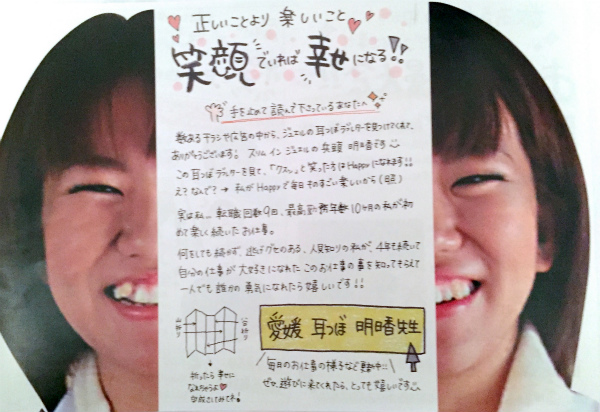 正しいことより 楽しいこと
笑顔でいれば幸せになる!!
手を止めて読んで下さっているあなたへ
数あるチラシや広告の中から、ジュエルの耳つぼラブレターを見つけてくれて、
ありがとうございます! スリム イン ジュエルの 矢頭 明香です
この耳つぼラブレターを見て、「クスッ」と笑った方はHappyになれます!!
え?なんで? → 私がHappyで毎日すっごい楽しいから(照)
実は私... 転職回数9回、最高勤務年数10ヶ月の私が初
めて楽しく続いたお仕事。
何をしても続かず、逃げグセのある、人見知りの私が、4年も続いて
自分の仕事が大好きになれた このお仕事の事を知ってもらえて
一人でも誰かの勇気になれたら嬉しいです!!
山折り
谷折り
折ったら幸せに
なれちゃうよ
愛媛 耳つぼ 明香先生
毎日のお仕事の様子など更新中!!
ぜひ、遊びに来てくれたら、とっても嬉しいです